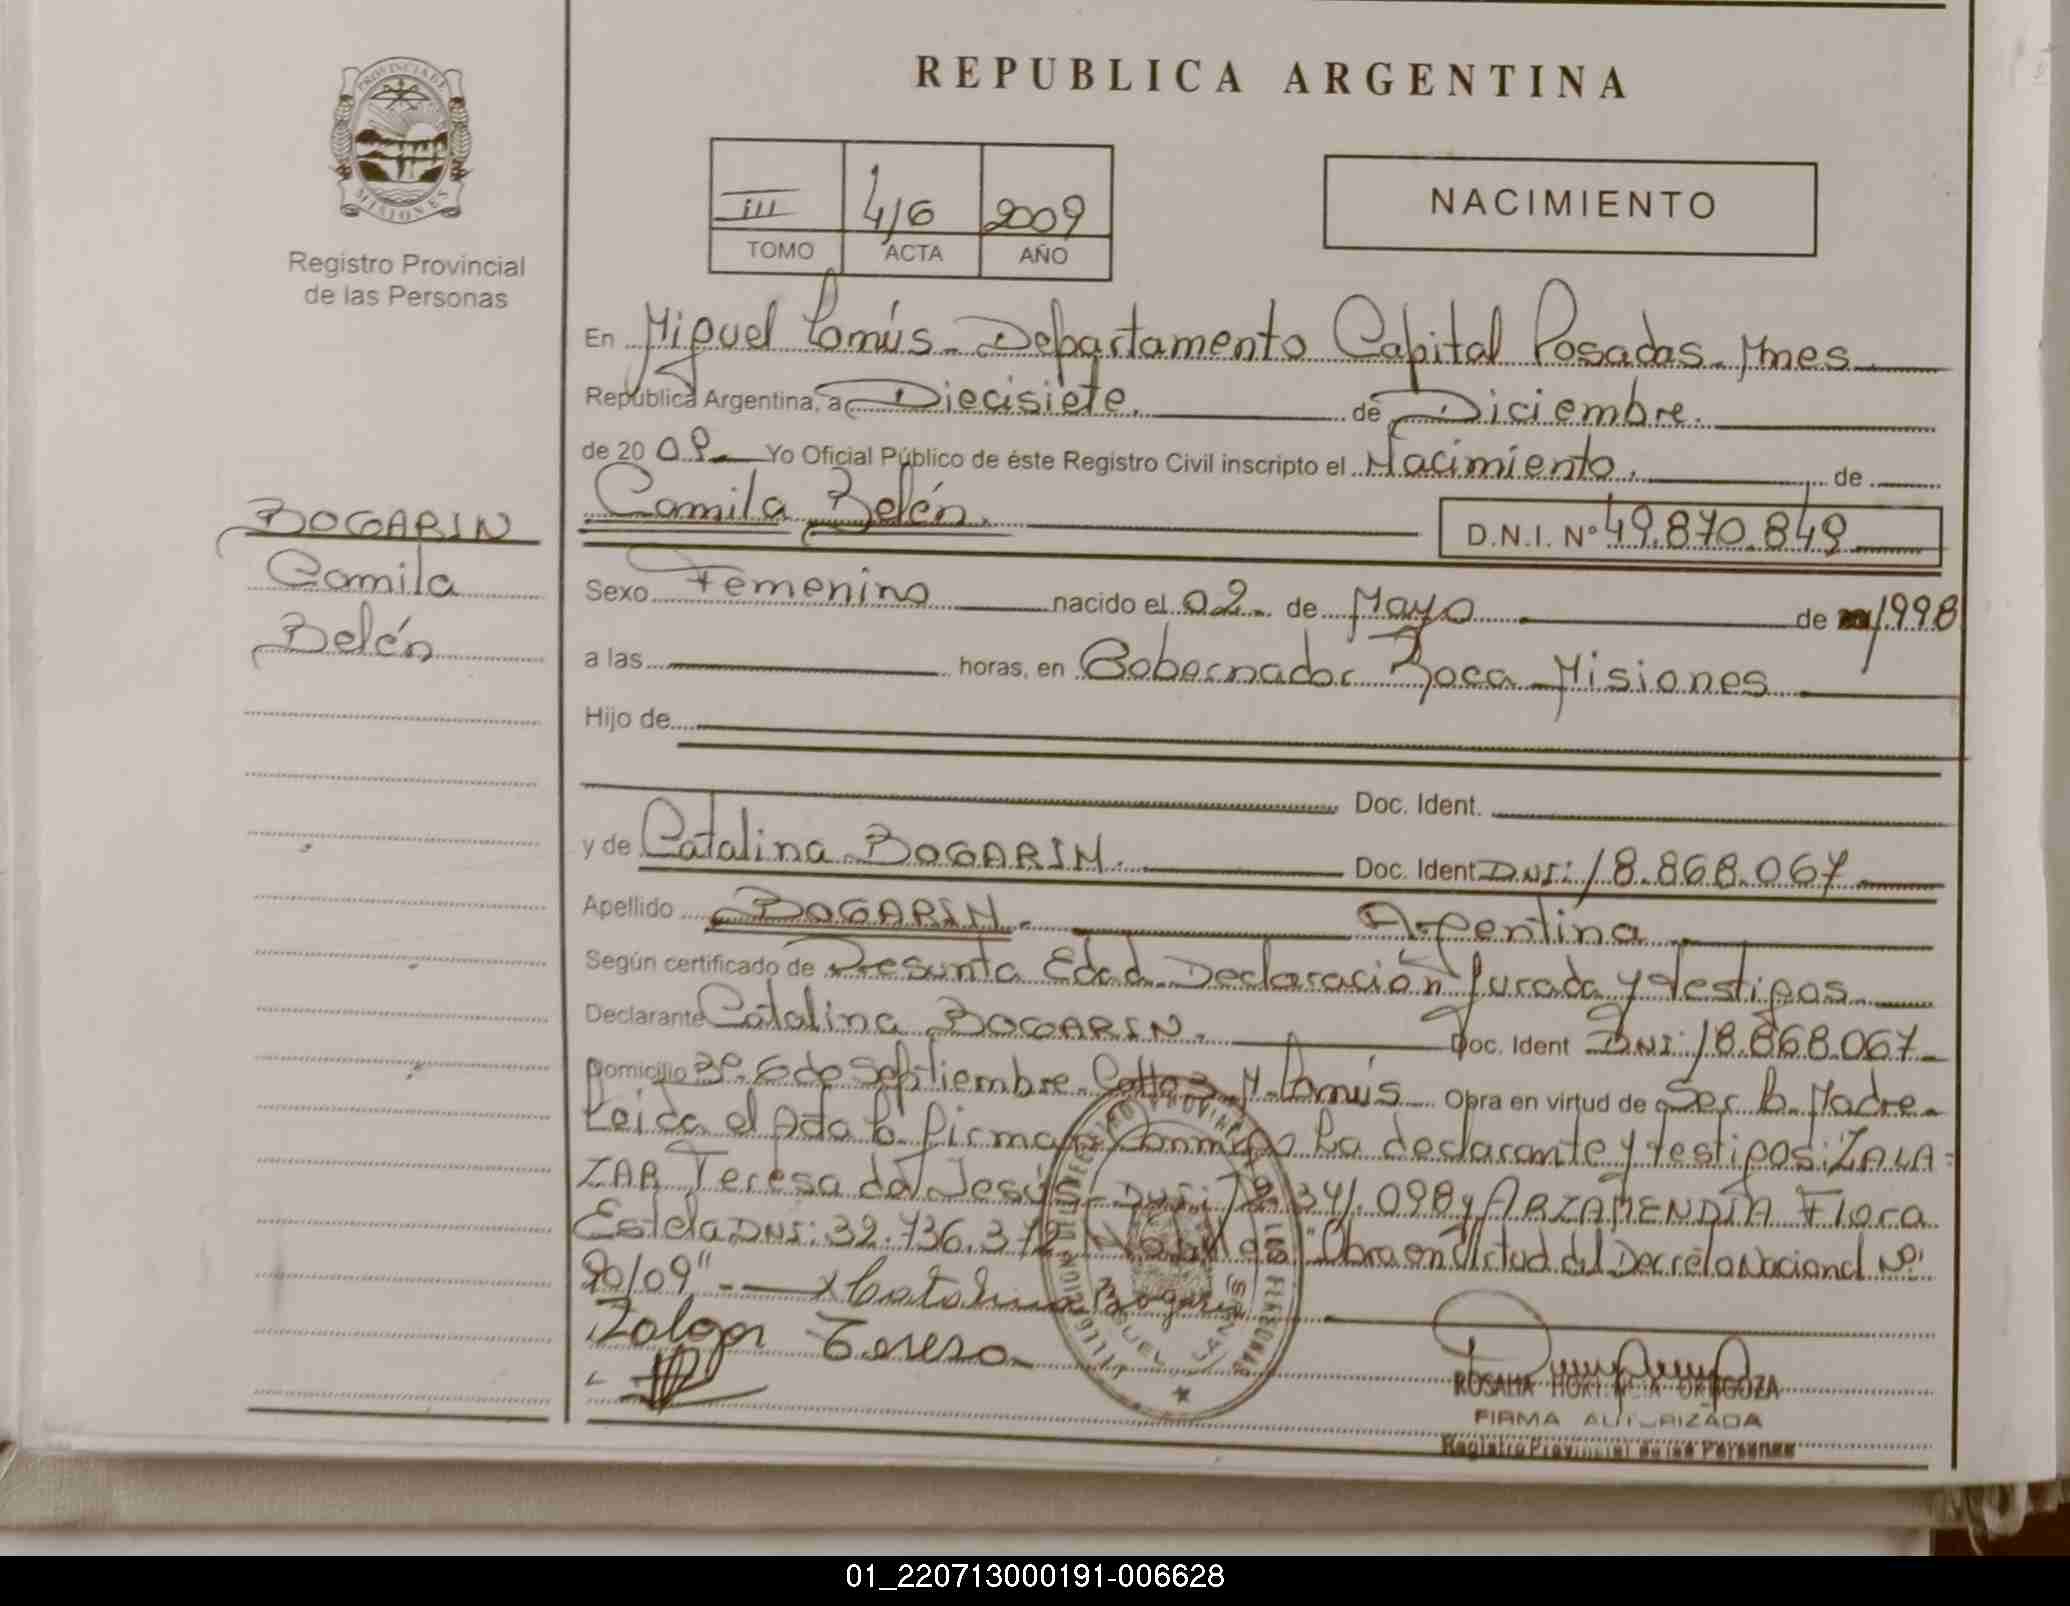 REPUBLICA ARGENTINA
PROVINCIA DE
MISIONES
Registro Provincial
de las Personas
III 416 2009
TOMO ACTA AÑO
NACIMIENTO
En Miguel Lanús - Departamento Capital Posadas - Mnes
República Argentina, a Diecisiete. de Diciembre.
de 20 09 Yo Oficial Público de éste Registro Civil inscripto el Nacimiento. de
Camila Belén. D.N.I. Nº 49.870.849
BOGARIN
Camila
Belén
Sexo Femenino nacido el 02 de Mayo de 1998
a las horas, en Gobernador Roca - Misiones
Hijo de
Doc. Ident.
y de Catalina BOGARIN. Doc. Ident DNI: 18.868.067
Apellido BOGARIN. Argentina
Según certificado de Presunta Edad Declaración Jurada y testigos
Declarante Catalina BOGARIN. Doc. Ident DNI: 18.868.067
Domicilio 6 de Septiembre M. Lanús Obra en virtud de Ser la Madre
Leida el Acta la firman conmigo la declarante y testigos: ZALA=
ZAR Teresa de Jesús DNI: 341.098 y ARZAMENDIA Flora
Estela DNI: 32.736.372 "Obra en Virtud del Decreto Nacional Nº:
90/09" x Catalina Bogarin
Zalazar Teresa
FIRMA AUTORIZADA
Registro Provincial de las Personas
01_220713000191-006628